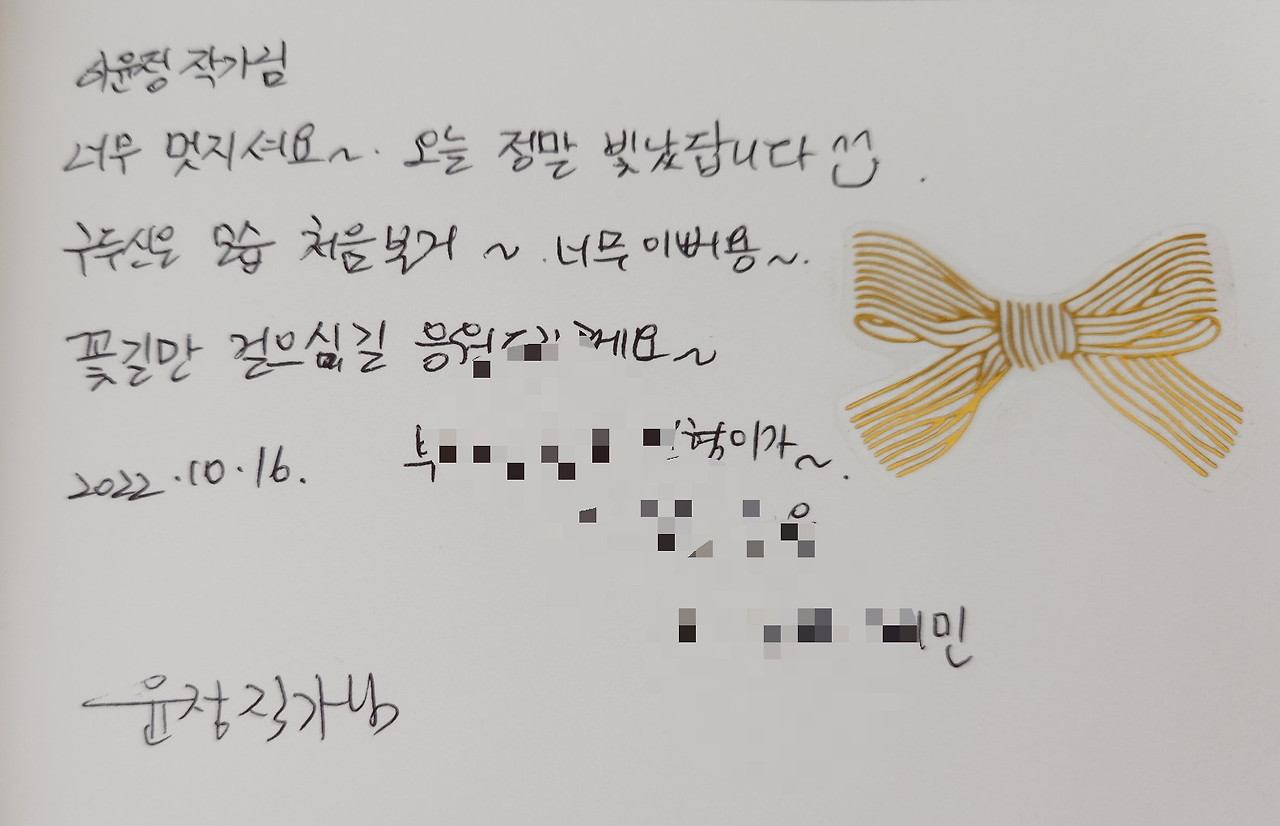 이윤정 작가님
너무 멋지셔요~. 오늘 정말 빛났답니다 .
구두신은 모습 처음보거 ~ . 너무 이버용~.
꽃길만 걸으심길 응원 께요~
2022.10.16. 혁이가~.
민
윤정작가님